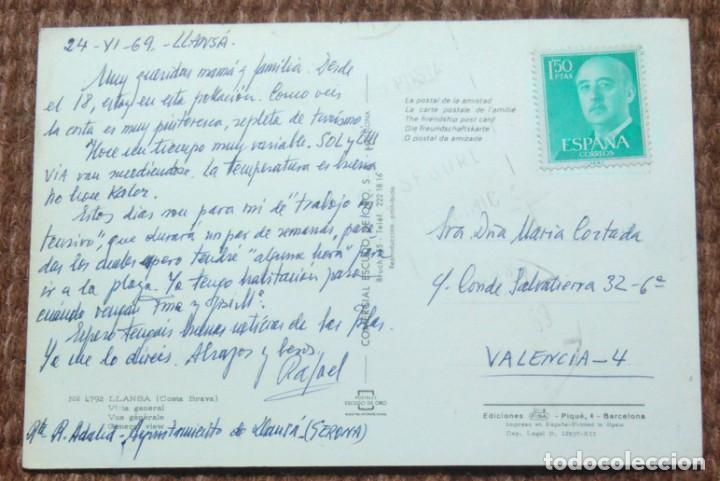 24-VI-69-LLANSÁ.
Muy queridos mamá y familia. Desde
el 18, estoy en esta población. Como veis
la costa es muy pintoresca, repleta de turismo.
Hace un tiempo muy variable. SOL y LLU
VIA van sucediendose. La temperatura es buena
no hace Kalor.
Estos dias son para mi de "trabajo in
tensivo", que durará un par de semanas, pasa
das los cuales espero tendré "alguna hora" para
ir a la playa. Ya tengo habitacion para
cuando vengan Tina y José Mª.
Espero tengais buenas noticias de las
Ya me lo direis. Abrazos y besos.
Rafael
Nº 4792 LLANSA (Costa Brava)
Vista general
Vue générale
General view
Rte R. Adalid-Ayuntamiento de Llansá (GERONA)
COMERCIAL ESCUDO DE ORO, S.
Telf. 222 18 16
Reproducción prohibida
POSTALES
ESCUDO DE ORO
La postal de la amistad
La carte postale de l'amitié
The friendship post card
Die Freundschaftskarte
O postal da amizade
1'50
PTAS
ESPAÑA
CORREOS
Sra. Dña Maria Cortada
c/. Conde Salvatierra 32-6ª
VALENCIA-4
Ediciones FISA - Piqué, 4 - Barcelona
Impreso en España-Printed in Spain
Dep. Legal B. 12837-XII
todocoleccion.net